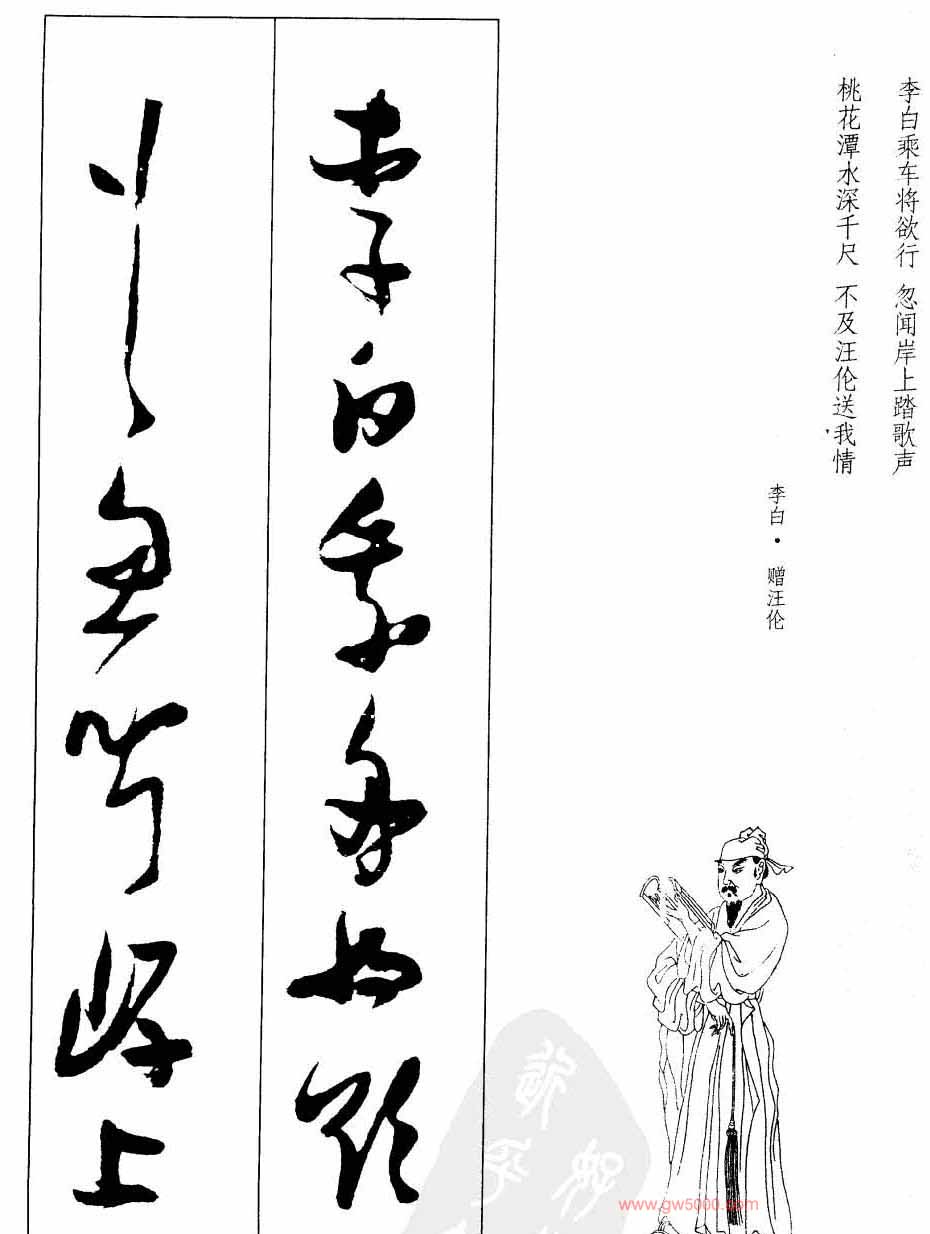 李白乘车将欲行 忽闻岸上踏歌声
桃花潭水深千尺 不及汪伦送我情
李白·赠汪伦
李白乘舟将欲
行忽闻岸上
www.gw5000.com